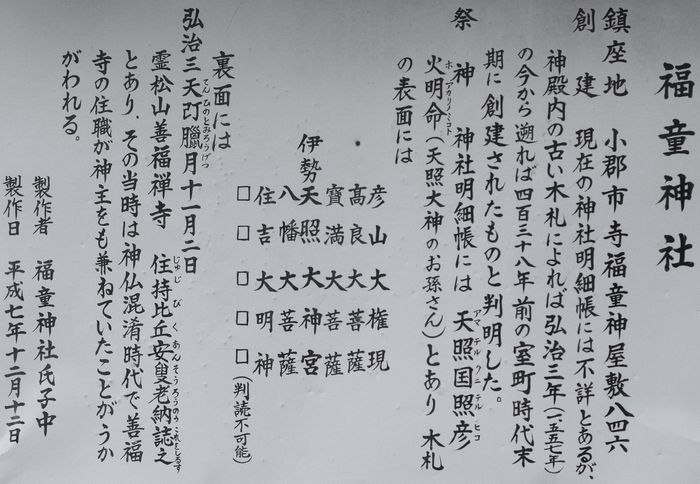 福童神社
鎮座地 小郡市寺福童神屋敷八四六
創建 現在の神社明細帳には不詳とあるが、
神殿内の古い木札によれば弘治三年(一五五七年)
の今から遡れば四百三十八年前の室町時代末
期に創建されたものと判明した。
祭神 神社明細帳には 天照国照彦
アマテルクニテルヒコ
火明命(天照大神のお孫さん)とあり 木札
ホアカリノミコト
の表面には
彦山大権現
高良大菩薩
寶満大菩薩
伊勢天照大神宮
八幡大菩薩
住吉大明神
□□□□□(判読不可能)
裏面には
弘治三天丁巳臘月十一月二日
てんひのとみろうげつ
霊松山善福禅寺 住持比丘安叟老納誌之
じゅじびくあんそうろうのうこれをしるす
とあり、その当時は神仏混淆時代で善福
寺の住職が神主をも兼ねていたことがうか
がわれる。
製作者 福童神社氏子中
製作日 平成七年十二月十二日